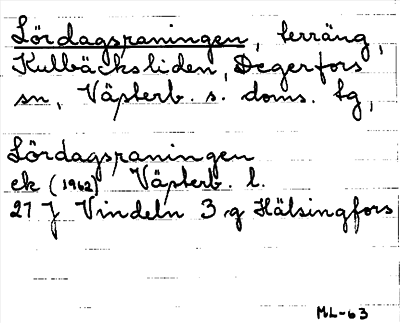 Lördagsraningen, terräng,
Kulbäcksliden, Degerfors
sn, Västerb. s. doms. tg,
Lördagsraningen
ek (1962) Västerb. l.
27 J Vindeln 3 g Hälsingfors
ML-63